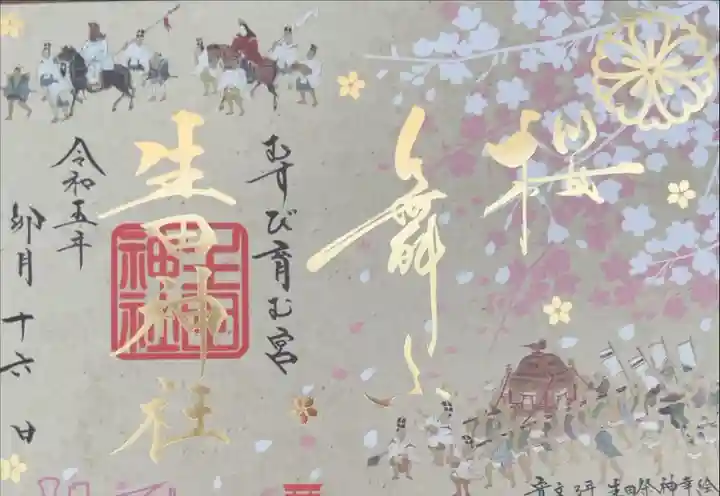 櫻
舞ふ
むすび育む宮
生田神社
生田神社
令和五年
卯月十六日
生田祭神幸絵